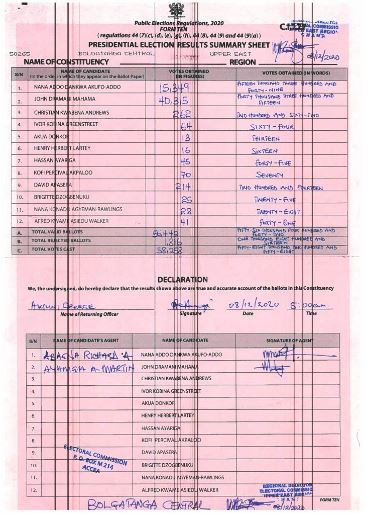 Public Elections Regulations, 2020
FORM TEN
PRESIDENTIAL ELECTION RESULTS SUMMARY SHEET
BOLGATANGA CENTRAL UPPER EAST 08/12/2020
NAME OF CONSTITUENCY REGION
S/N NAME OF CANDIDATE VOTES OBTAINED VOTES OBTAINED (IN WORDS)
(in the order in which they appear on the Ballot Paper) (IN FIGURES)
1. NANA ADDO DANKWA AKUFO-ADDO 15,349 FIFTEEN THOUSAND THREE HUNDRED AND FORTY-NINE
2. JOHN DRAMANI MAHAMA 40,315 FORTY THOUSAND THREE HUNDRED AND FIFTEEN
3. CHRISTIAN KWABENA ANDREWS 262 TWO HUNDRED AND SIXTY-TWO
4. IVOR KOBINA GREENSTREET 64 SIXTY-FOUR
5. AKUA DONKOR 13 THIRTEEN
6. HENRY HERBERT LARTEY 16 SIXTEEN
7. HASSAN AYARIGA 45 FORTY-FIVE
8. KOFI PERCIVAL AKPALOO 70 SEVENTY
9. DAVID APASERA 214 TWO HUNDRED AND FOURTEEN
10. BRIGITTE DZOGBENUKU 25 TWENTY-FIVE
11. NANA KONADU AGYEMAN-RAWLINGS 28 TWENTY-EIGHT
12. ALFRED KWAME ASIEDU WALKER 41 FORTY-ONE
A. TOTAL VALID BALLOTS 56,442 FIFTY-SIX THOUSAND FOUR HUNDRED AND FORTY-TWO
B. TOTAL REJECTED BALLOTS ONE THOUSAND EIGHT HUNDRED AND
C. TOTAL VOTES CAST FIFTY-EIGHT THOUSAND TWO HUNDRED AND
DECLARATION
We, the undersigned, do hereby declare that the results shown above are true and accurate account of the ballots in this Constituency
GEORGE 08/12/2020 5:00am
Name of Returning Officer Signature Date Time
S/N NAME OF CANDIDATE'S AGENT NAME OF CANDIDATE SIGNATURE OF AGENT
1. RICHARD A NANA ADDO DANKWA AKUFO-ADDO
2. A. MARTIN JOHN DRAMANI MAHAMA
3. CHRISTIAN KWABENA ANDREWS
4. IVOR KOBINA GREENSTREET
5. AKUA DONKOR
6. HENRY HERBERT LARTEY
7. HASSAN AYARIGA
8. KOFI PERCIVAL AKPALOO
9. DAVID APASERA
10. BRIGITTE DZOGBENUKU
11. NANA KONADU AGYEMAN-RAWLINGS
12. ALFRED KWAME ASIEDU WALKER
ELECTORAL COMMISSION
P. O. BOX M 214
ACCRA
REGIONAL DIRECTOR
ELECTORAL COMMISSION
UPPER EAST REGION
BOLGATANGA CENTRAL
FORM TEN